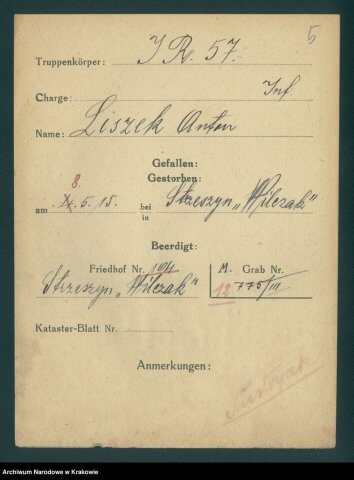 5
Truppenkörper: J R. 57.
Charge: Inf
Name: Liszek Anton
Gefallen:
Gestorben:
8.
am 5. 15. bei in Strzeszyn „Wilczak"
Beerdigt:
Friedhof Nr. M. Grab Nr.
Strzeszyn „Wilczak" 18 775/III
Kataster-Blatt Nr.
Anmerkungen:
Archiwum Narodowe w Krakowie